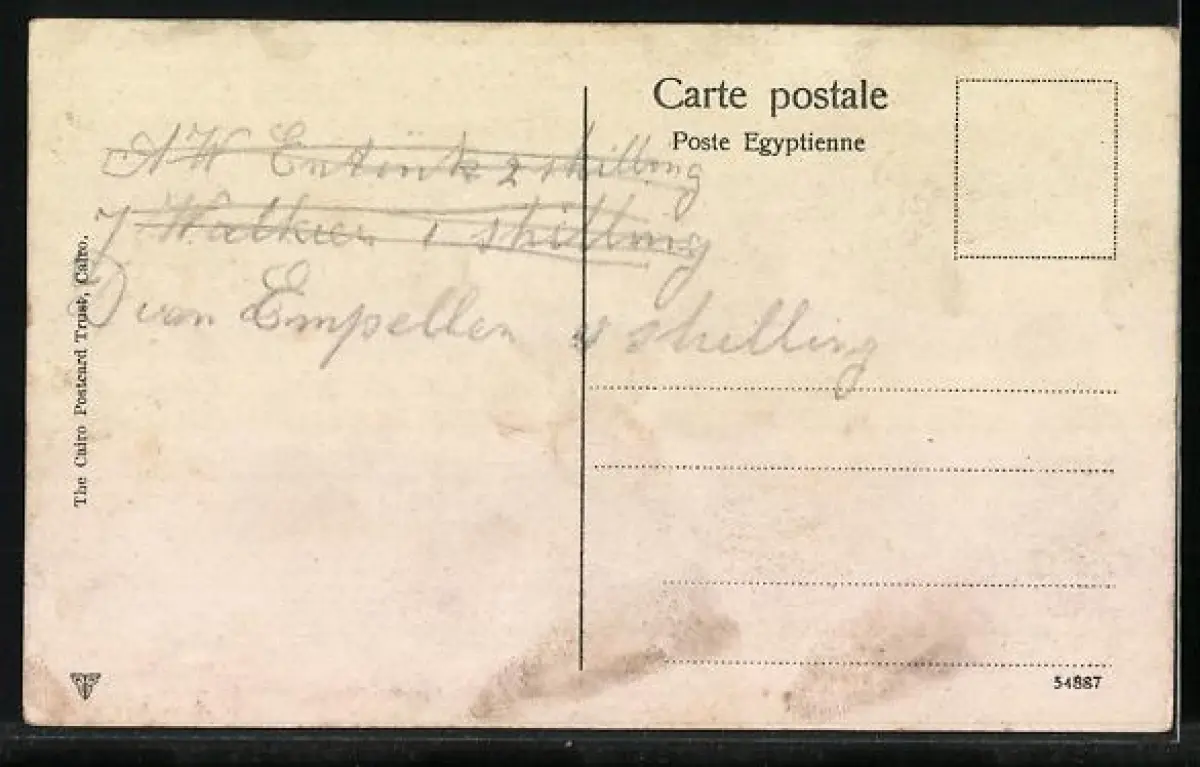 Carte postale
Poste Egyptienne
A W Entink 2 shilling
J Walkier 1 shilling
D van Empellen shilling
The Cairo Postcard Trust, Cairo.
54887